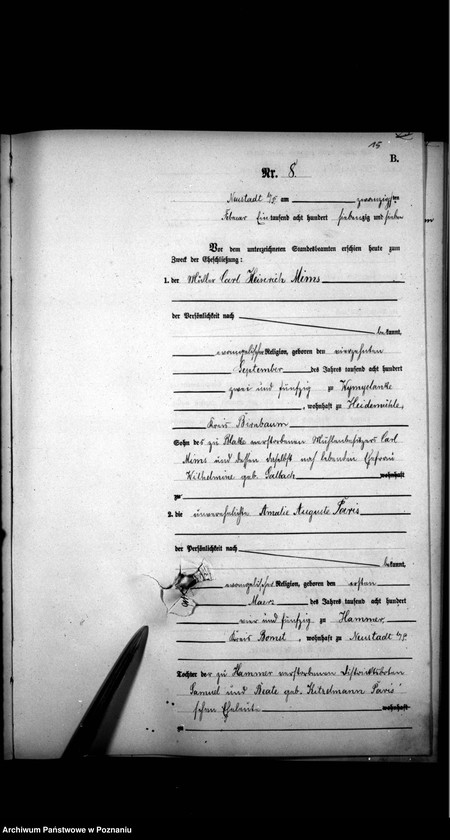 15
B.
Nr. 8.
Neustadt b/P. am zwanzigsten
Februar Eintausend acht hundert siebenzig und sieben
Vor dem unterzeichneten Standesbeamten erschien heute zum
Zweck der Eheschließung:
1. der Müller Carl Heinrich Mims
der Persönlichkeit nach
be kannt,
evangelischer Religion, geboren den vierzehnten
September des Jahres tausend acht hundert
zwei und fünfzig zu
, wohnhaft zu Heidemühle,
Kreis Birnbaum
Sohn des zu Blake verstorbenen Mühlenbesitzers Carl
Mims und dessen daselbst noch lebenden Ehefrau
Wilhelmine geb. wohnhaft
zu
2. die unverehelichte Amalie Auguste Paris
der Persönlichkeit nach
bekannt,
evangelischer Religion, geboren den ersten
Maerz des Jahres tausend acht hundert
vier und fünfzig zu Hammer,
Kreis Bomst, wohnhaft zu Neustadt b/P.
Tochter der zu Hammer verstorbenen Distriktsboten
Samuel und Beate geb. Kitzelmann Paris'
schen Eheleute wohnhaft
zu
Archiwum Państwowe w Poznaniu